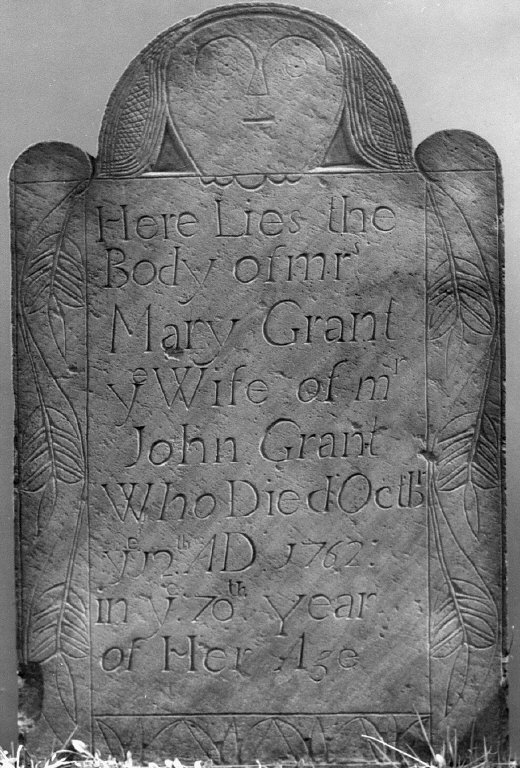 Here Lies the
Body of mrs
Mary Grant
ye Wife of mr
John Grant
Who Died Octbr
ye 12th AD 1762:
in ye: 70th Year
of Her Age